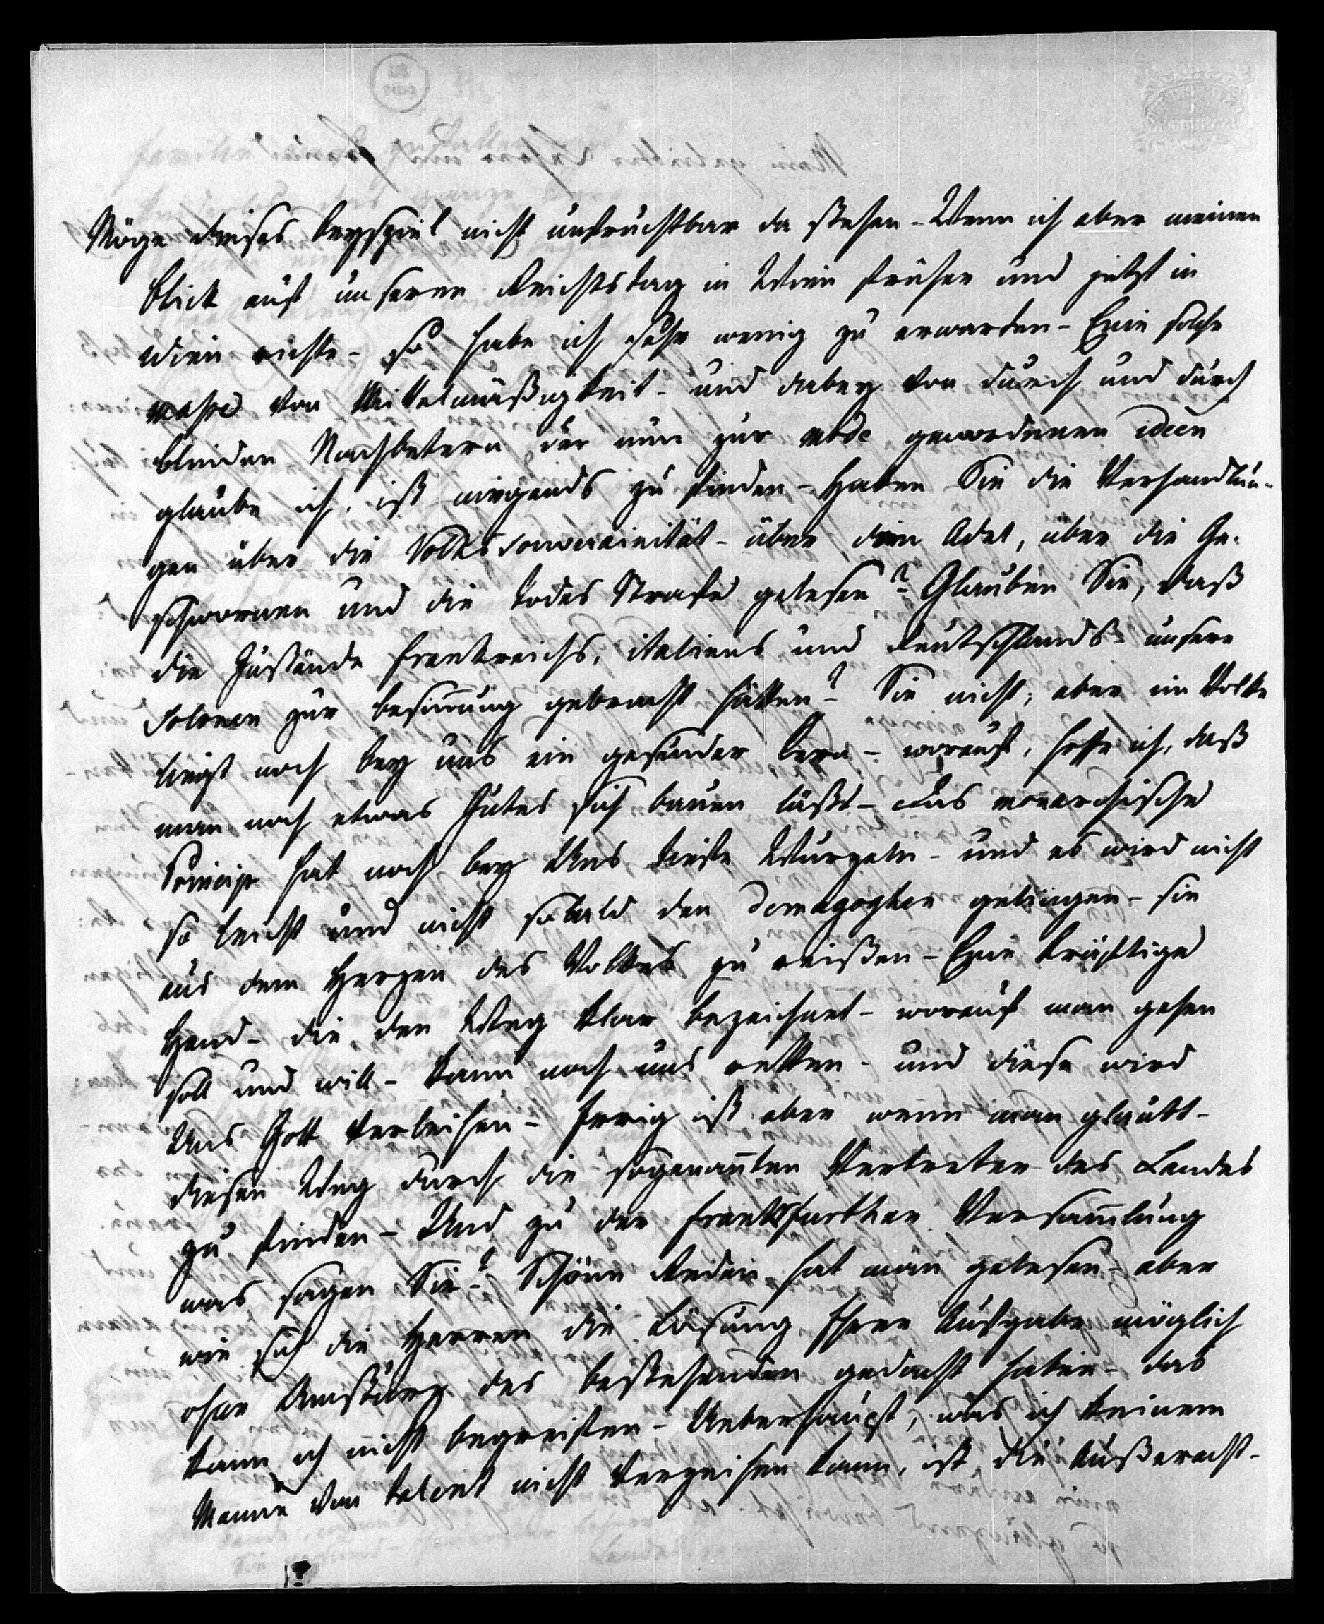 Möge dieses Beyspiel nicht unfruchtbar da stehen - Wenn ich aber meinen
Blick auf unseren Reichstag in Wien früher und jetzt in
richte - so habe ich sehr wenig zu erwarten - Eine solche
masse von Mittelmäßigkeit - und dabey von durch und durch
blinden Nachbetern der nun zur mode gewordenen ideen
glaube ich, ist nirgends zu finden - Haben Sie die Verhandlun-
gen über die Volkssouverainität - über den Adel, über die Ge-
schwornen und die Todes Strafe gelesen? Glauben Sie, daß
die Zustände Frankreichs, italiens und Deutschlands - unsere
Solonen zur besinnung gebracht hätten? Sie nicht, aber im Volke
liegt noch bey uns ein gesunder Kern - worauf, hoffe ich, daß
man noch etwas Gutes sich bauen läßt - Das monarchische
Princip hat noch bey Uns tiefe Wurzeln - und es wird nicht
so leicht und nicht sobald den demagoghen gelingen - sie
aus dem Herzen des Volkes zu reißen - Eine kräftige
Hand - die den Weg klar bezeichnet - worauf man gehen
soll und will - kann noch uns retten - und diese wird
Uns Gott verleihen - Irrig ist aber wenn man glaubt -
diesen Weg durch die sogenannten Vertreter des Landes
zu finden - Und zu der Frankfurther Versammlung
was sagen Sie? Schöne Reden hat man gelesen - aber
wie sich die Herren die Lösung Ihrer Aufgabe möglich
ohne Umsturz des bestehenden gedacht haben - das
kann ich nicht begreifen - Ueberhaupt, was ich keinem
Manne von talent nicht verzeihen kann, ist, die Außeracht-